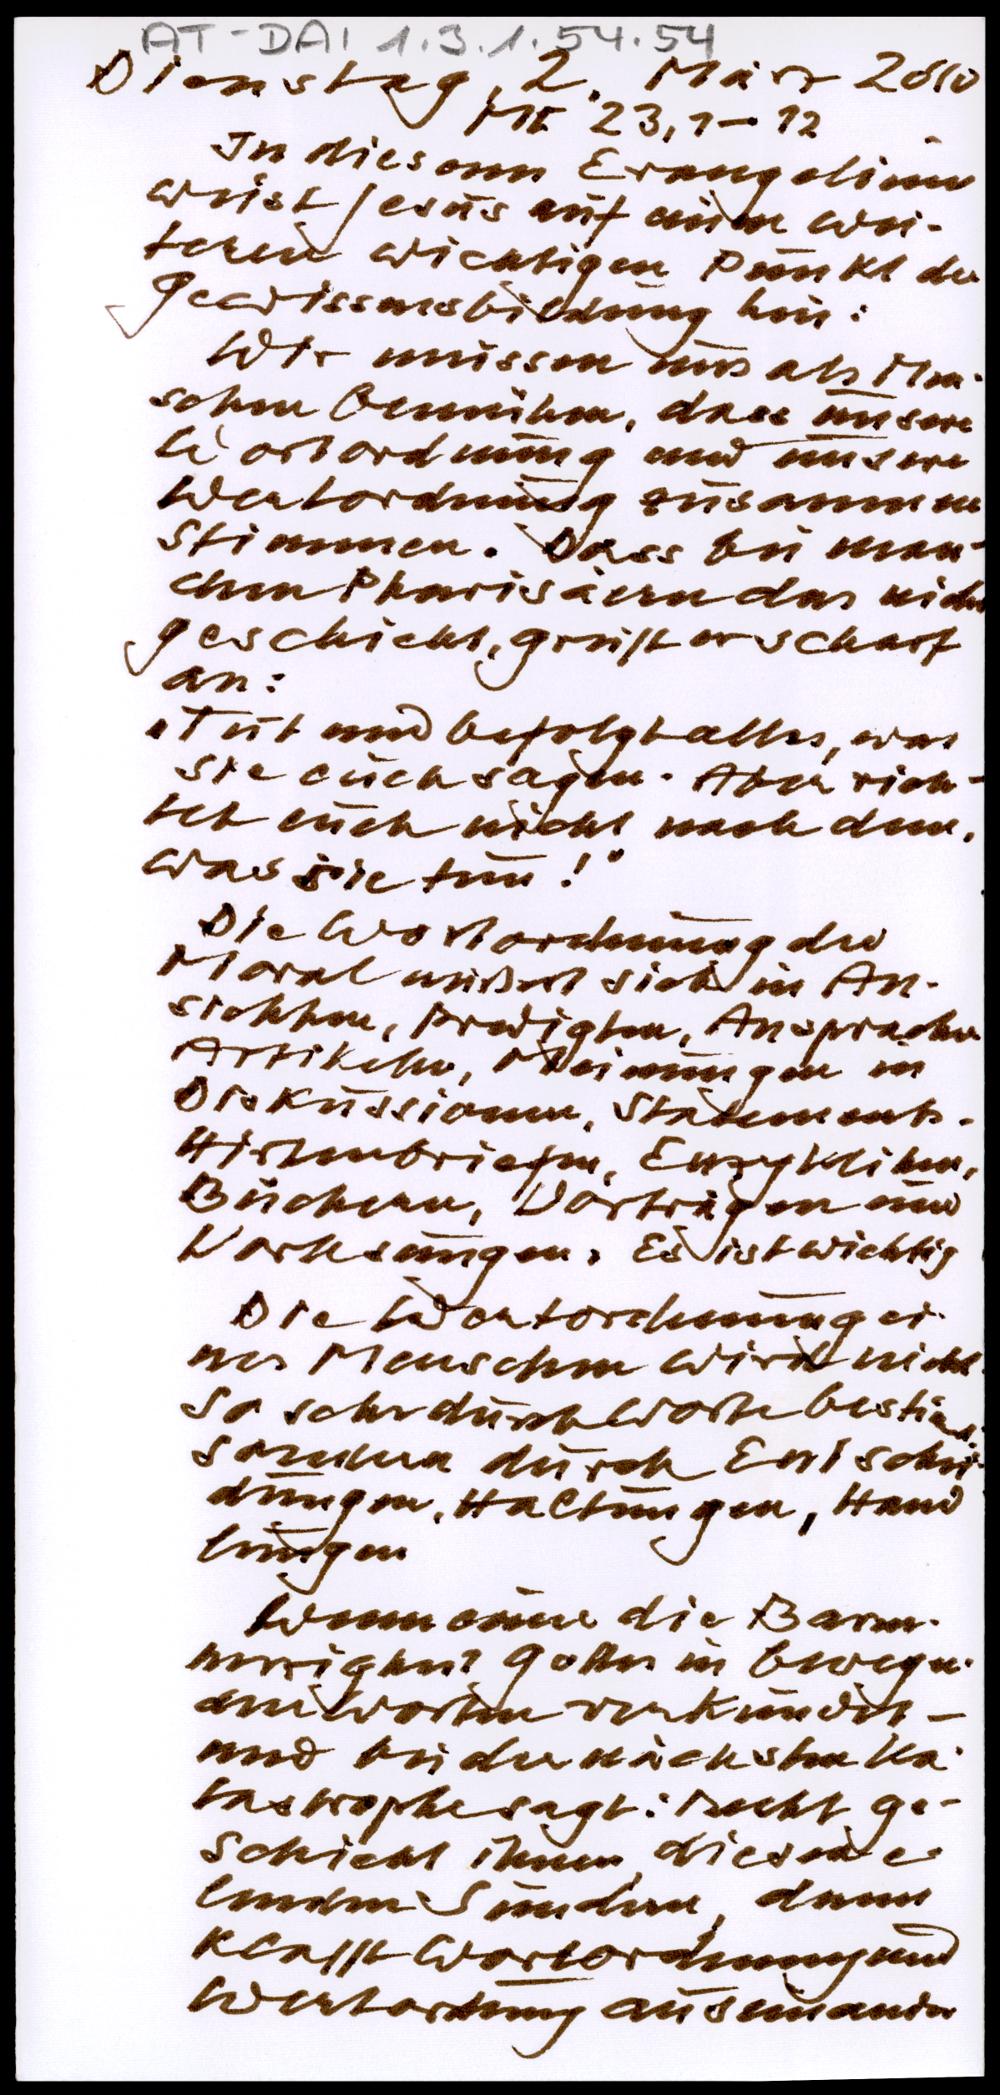 AT-DAI 1.3.1.54.54
Dienstag, 2. März 2010
Mt 23,1-12
In diesem Evangelium
weist Jesus auf einen wei-
teren wichtigen Punkt der
Gewissensbildung hin:
Wir müssen uns als Men-
schen bemühen, dass unsere
Wortordnung und unsere
Wertordnung zusammen
stimmen. Dass bei man-
chen Pharisäern das nicht
geschieht, greift er scharf
an:
„Tut und befolgt alles, was
sie euch sagen. Aber rich-
tet euch nicht nach dem,
was sie tun!"
Die Wortordnung der
Moral äußert sich in An-
sichten, Predigten, Ansprachen
Artikeln, Meinungen in
Diskussionen, Statements,
Hirtenbriefen, Enzykliken,
Büchern, Vorträgen und
Vorlesungen. Es ist wichtig
Die Wertordnung ei-
nes Menschen wird nicht
so sehr durch Worte bestimmt,
sondern durch Entschei-
dungen, Haltungen, Hand
lungen
Wenn einer die Barm-
herzigkeit Gottes in bewegen-
den Worten verkündet –
und bei der nächsten Ka-
tastrophe sagt: Recht ge-
schieht ihnen, diesen e-
lenden Sündern, dann
klafft Wortordnung und
Wertordnung auseinander